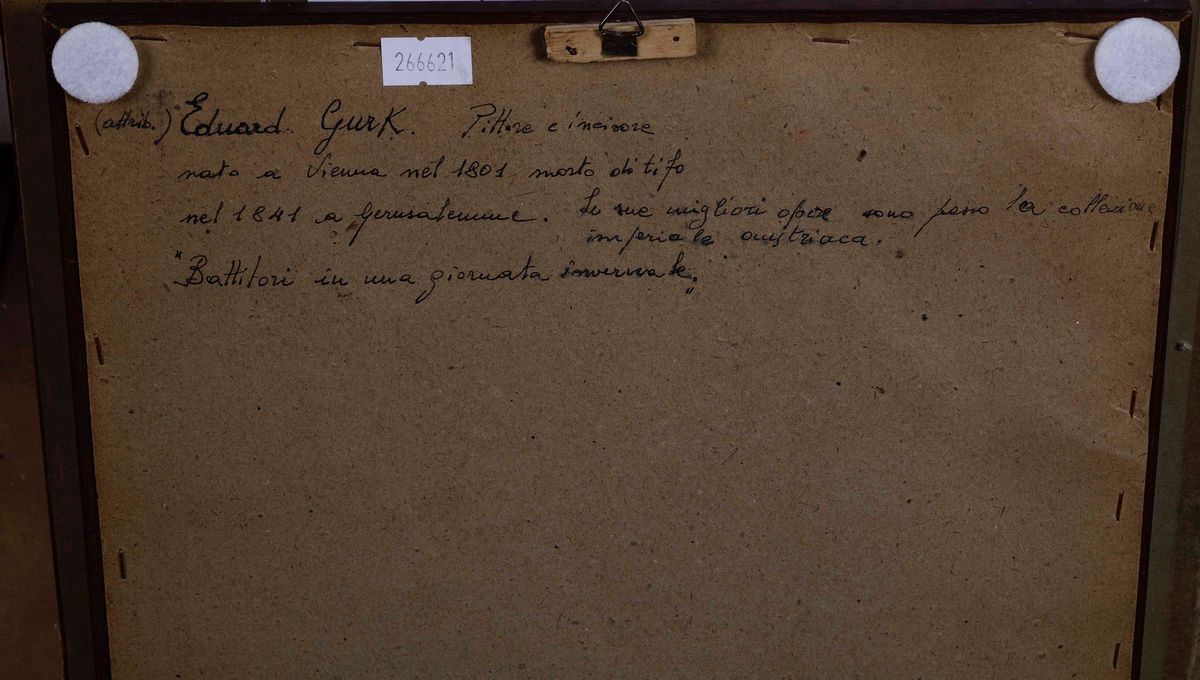 266621
(attrib.) Eduard. Gurk. Pittore e incisore
nato a Vienna nel 1801 morto di tifo
nel 1841 a Gerusalemme. Le sue migliori opere sono presso la collezione
imperiale austriaca.
"Battitori in una giornata invernale."